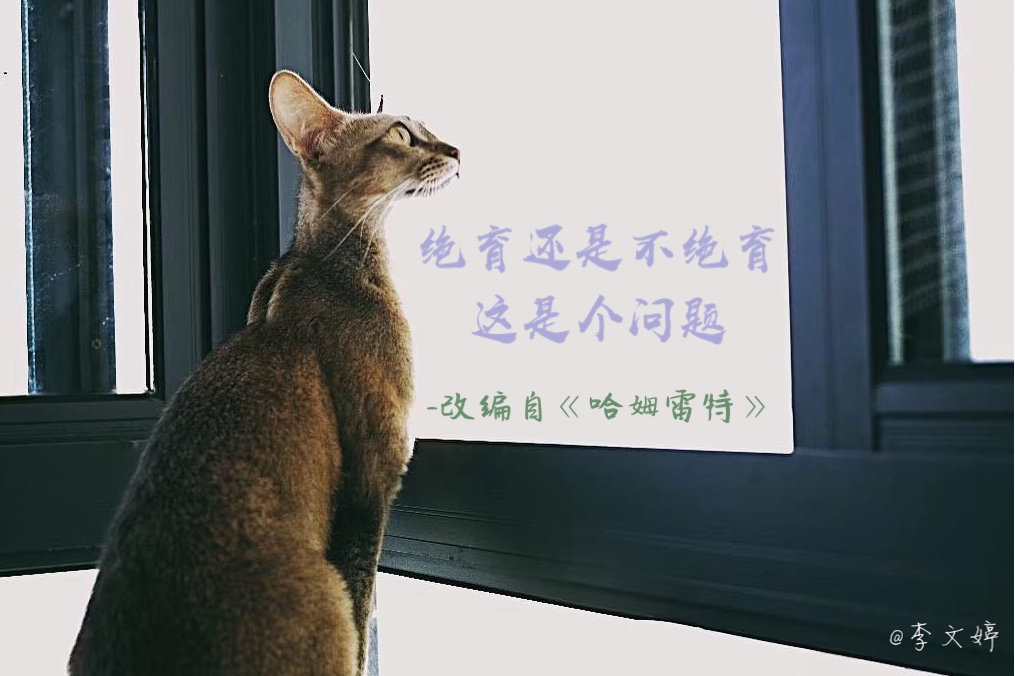 绝育还是不绝育
这是个问题
-改编自《哈姆雷特》
@李文婷